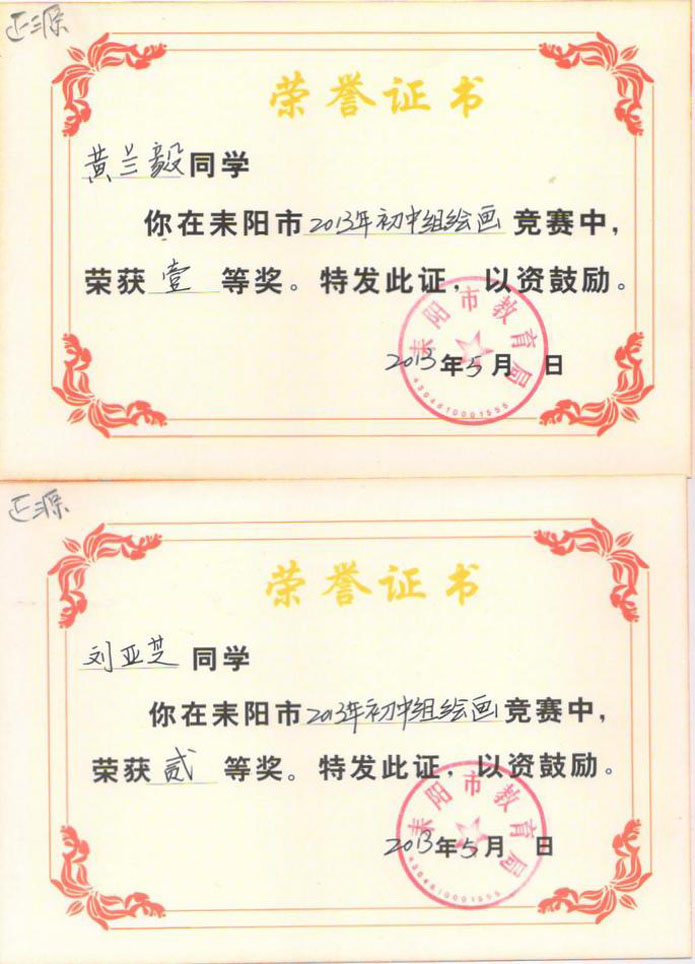 正源
荣誉证书
黄兰毅同学
你在耒阳市2013年初中组绘画竞赛中，
荣获壹等奖。特发此证，以资鼓励。
耒阳市教育局
2013年5月 日
4304810001555
正源
荣誉证书
刘亚芝同学
你在耒阳市2013年初中组绘画竞赛中，
荣获贰等奖。特发此证，以资鼓励。
耒阳市教育局
2013年5月 日
4304810001555